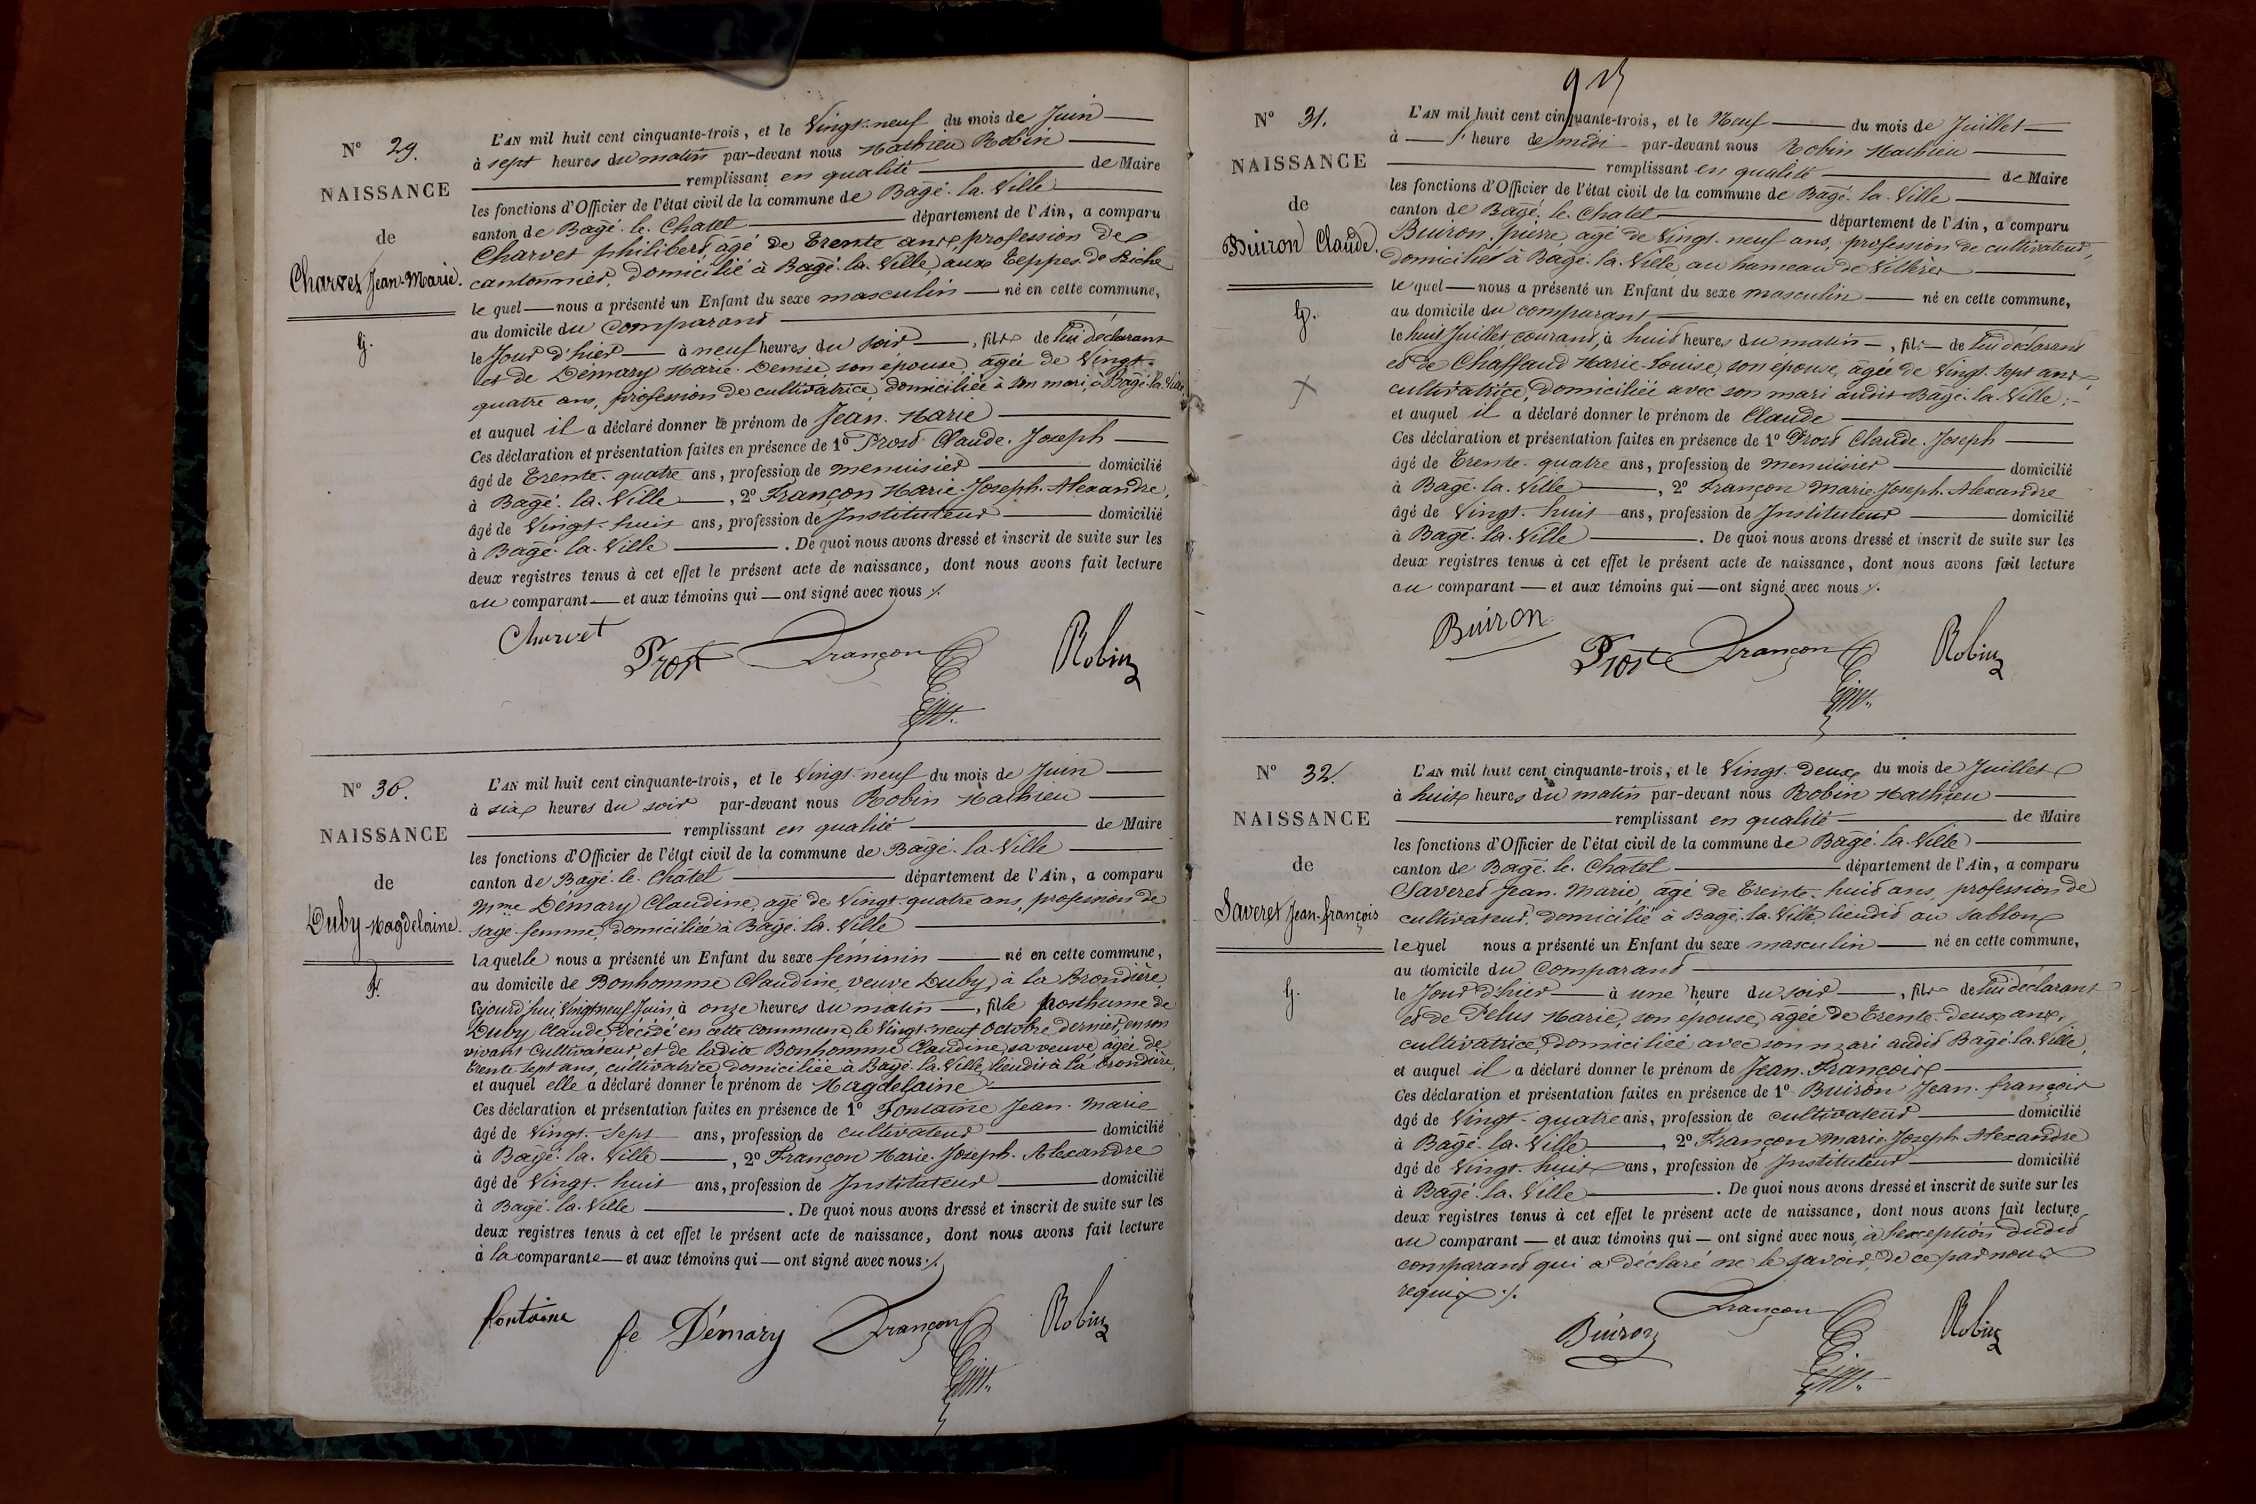 N° 29.
NAISSANCE
de
Charvet Jean-Marie.
g.
L'AN mil huit cent cinquante-trois, et le Vingt-neuf du mois de Juin
à sept heures du matin par-devant nous Mathieu Robin
remplissant en qualité de Maire
les fonctions d'Officier de l'état civil de la commune de Bagé-la-Ville
canton de Bagé-le-Chatel département de l'Ain, a comparu
Charvet philibert âgé de Trente ans, profession de
cantonnier, domicilié à Bagé-la-Ville, aux Teppes de Biche
le quel nous a présenté un Enfant du sexe masculin né en cette commune,
au domicile du comparant
le Jour d'hier à neuf heures du soir, fils de lui déclarant
et de Démary Marie-Denise, son épouse, âgée de Vingt-
quatre ans, profession de cultivatrice, domiciliée à son mari, à Bagé-la-Ville
et auquel il a déclaré donner le prénom de Jean-Marie
Ces déclaration et présentation faites en présence de 1° Prost Claude-Joseph
âgé de Trente-quatre ans, profession de menuisier domicilié
à Bagé-la-Ville, 2° Françon Marie-Joseph-Alexandre,
âgé de Vingt-huit ans, profession de Instituteur domicilié
à Bagé-la-Ville. De quoi nous avons dressé et inscrit de suite sur les
deux registres tenus à cet effet le présent acte de naissance, dont nous avons fait lecture
au comparant et aux témoins qui ont signé avec nous ./.
Charvet
Prost Françon Robin
N° 30.
NAISSANCE
de
Duby Magdelaine.
F.
L'AN mil huit cent cinquante-trois, et le Vingt-neuf du mois de Juin
à six heures du soir par-devant nous Robin Mathieu
remplissant en qualité de Maire
les fonctions d'Officier de l'état civil de la commune de Bagé-la-Ville
canton de Bagé-le-Chatel département de l'Ain, a comparu
Mme Démary Claudine, âgé de Vingt-quatre ans, profession de
sage-femme, domiciliée à Bagé-la-Ville
laquelle nous a présenté un Enfant du sexe féminin né en cette commune,
au domicile de Bonhomme Claudine, veuve Duby, à la Brondière
cejourd'hui, Vingt-neuf Juin, à onze heures du matin, fille posthume de
Duby Claude, Décédé en cette commune, le Vingt-neuf Octobre dernier, en son
vivant Cultivateur, et de ladite Bonhomme Claudine, sa veuve, âgée de
trente-sept ans, cultivatrice, domiciliée à Bagé-la-Ville, lieudit à la Brondière,
et auquel elle a déclaré donner le prénom de Magdelaine
Ces déclaration et présentation faites en présence de 1° Fontaine Jean-Marie
âgé de Vingt-Sept ans, profession de cultivateur domicilié
à Bagé-la-Ville, 2° Françon Marie-Joseph-Alexandre
âgé de Vingt-huit ans, profession de Instituteur domicilié
à Bagé-la-Ville. De quoi nous avons dressé et inscrit de suite sur les
deux registres tenus à cet effet le présent acte de naissance, dont nous avons fait lecture
à la comparante et aux témoins qui ont signé avec nous ./.
fontaine fe Démary Françon Robin
N° 31.
NAISSANCE
de
Buiron Claude.
g.
L'AN mil huit cent cinquante-trois, et le Neuf du mois de Juillet
à heure de midi par-devant nous Robin Mathieu
remplissant en qualité de Maire
les fonctions d'Officier de l'état civil de la commune de Bagé-la-Ville
canton de Bagé-le-Chatel département de l'Ain, a comparu
Buiron pierre, âgé de Vingt-neuf ans, profession de cultivateur,
domicilié à Bagé-la-Ville, au hameau de
le quel nous a présenté un Enfant du sexe masculin né en cette commune,
au domicile du comparant
le huit Juillet courant, à huit heures du matin, fils de lui déclarant
et de Chaffaud Marie-Louise, son épouse, âgée de Vingt-sept ans
cultivatrice, Domiciliée avec son mari audit Bagé-la-Ville;
et auquel il a déclaré donner le prénom de Claude
Ces déclaration et présentation faites en présence de 1° Prost Claude-Joseph
âgé de Trente-quatre ans, profession de menuisier domicilié
à Bagé-la-Ville, 2° Françon Marie-Joseph-Alexandre
âgé de Vingt-huit ans, profession de Instituteur domicilié
à Bagé-la-Ville. De quoi nous avons dressé et inscrit de suite sur les
deux registres tenus à cet effet le présent acte de naissance, dont nous avons fait lecture
au comparant et aux témoins qui ont signé avec nous ./.
Buiron
Prost Françon Robin
N° 32.
NAISSANCE
de
Saveret Jean-françois
g.
L'AN mil huit cent cinquante-trois, et le Vingt-deux du mois de Juillet
à huit heures du matin par-devant nous Robin Mathieu
remplissant en qualité de Maire
les fonctions d'Officier de l'état civil de la commune de Bagé-la-Ville
canton de Bagé-le-Chatel département de l'Ain, a comparu
Saveret Jean-Marie, âgé de Trente-huit ans, profession de
cultivateur, domicilié à Bagé-la-Ville, lieudit au Sablon
lequel nous a présenté un Enfant du sexe masculin né en cette commune,
au domicile du comparant
le Jour d'hier à une heure du soir, fils de lui déclarant
et de Pelus Marie, son épouse, âgée de Trente-deux ans,
cultivatrice, domiciliée avec son mari audit Bagé-la-Ville,
et auquel il a déclaré donner le prénom de Jean-François
Ces déclaration et présentation faites en présence de 1° Buiron Jean-françois
âgé de Vingt-quatre ans, profession de cultivateur domicilié
à Bagé-la-Ville, 2° Françon Marie-Joseph-Alexandre
âgé de Vingt-huit ans, profession de Instituteur domicilié
à Bagé-la-Ville. De quoi nous avons dressé et inscrit de suite sur les
deux registres tenus à cet effet le présent acte de naissance, dont nous avons fait lecture
au comparant et aux témoins qui ont signé avec nous, à l'exception dudit
comparant qui a déclaré ne le savoir, de ce par nous
requis ./.
Buiron Françon Robin